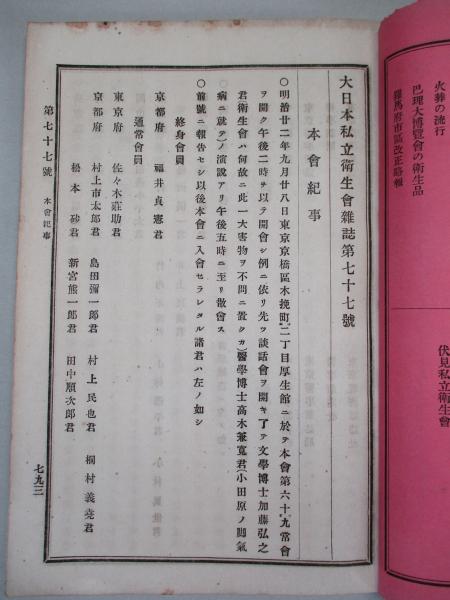 火葬の流行
巴瑰大博覽會の衛生品
羅馬府市區改正略報
伏見私立衛生會
大日本私立衛生會雜誌第七十七號
本會紀事
○明治廿二年九月廿八日東京京橋區木挽町二丁目厚生館ニ於テ本會第六十九常會
ヲ開ク午後二時ヲ以テ開會シ例ニ依リ先ツ談話會ヲ開キ了テ文學博士加藤弘之
君衛生會ハ何故ニ此一大害物ヲ不問ニ置クカ)醫學博士高木兼寬君(小田原ノ脚氣
病ニ就テ)ノ演説アリ午後五時ニ至リ散會ス
○前號ニ報告セシ以後本會ニ入會セラレタル諸君ハ左ノ如シ
終身會員
京都府 福井貞憲君
通常會員
東京府 佐々木莊助君
京都府 村上市太郎君 島田彌一郎君 村上民也君 桐村義堯君
松本砂君 新宮熊一郎君 田中順次郎君
第七十七號 本會紀事
七九三